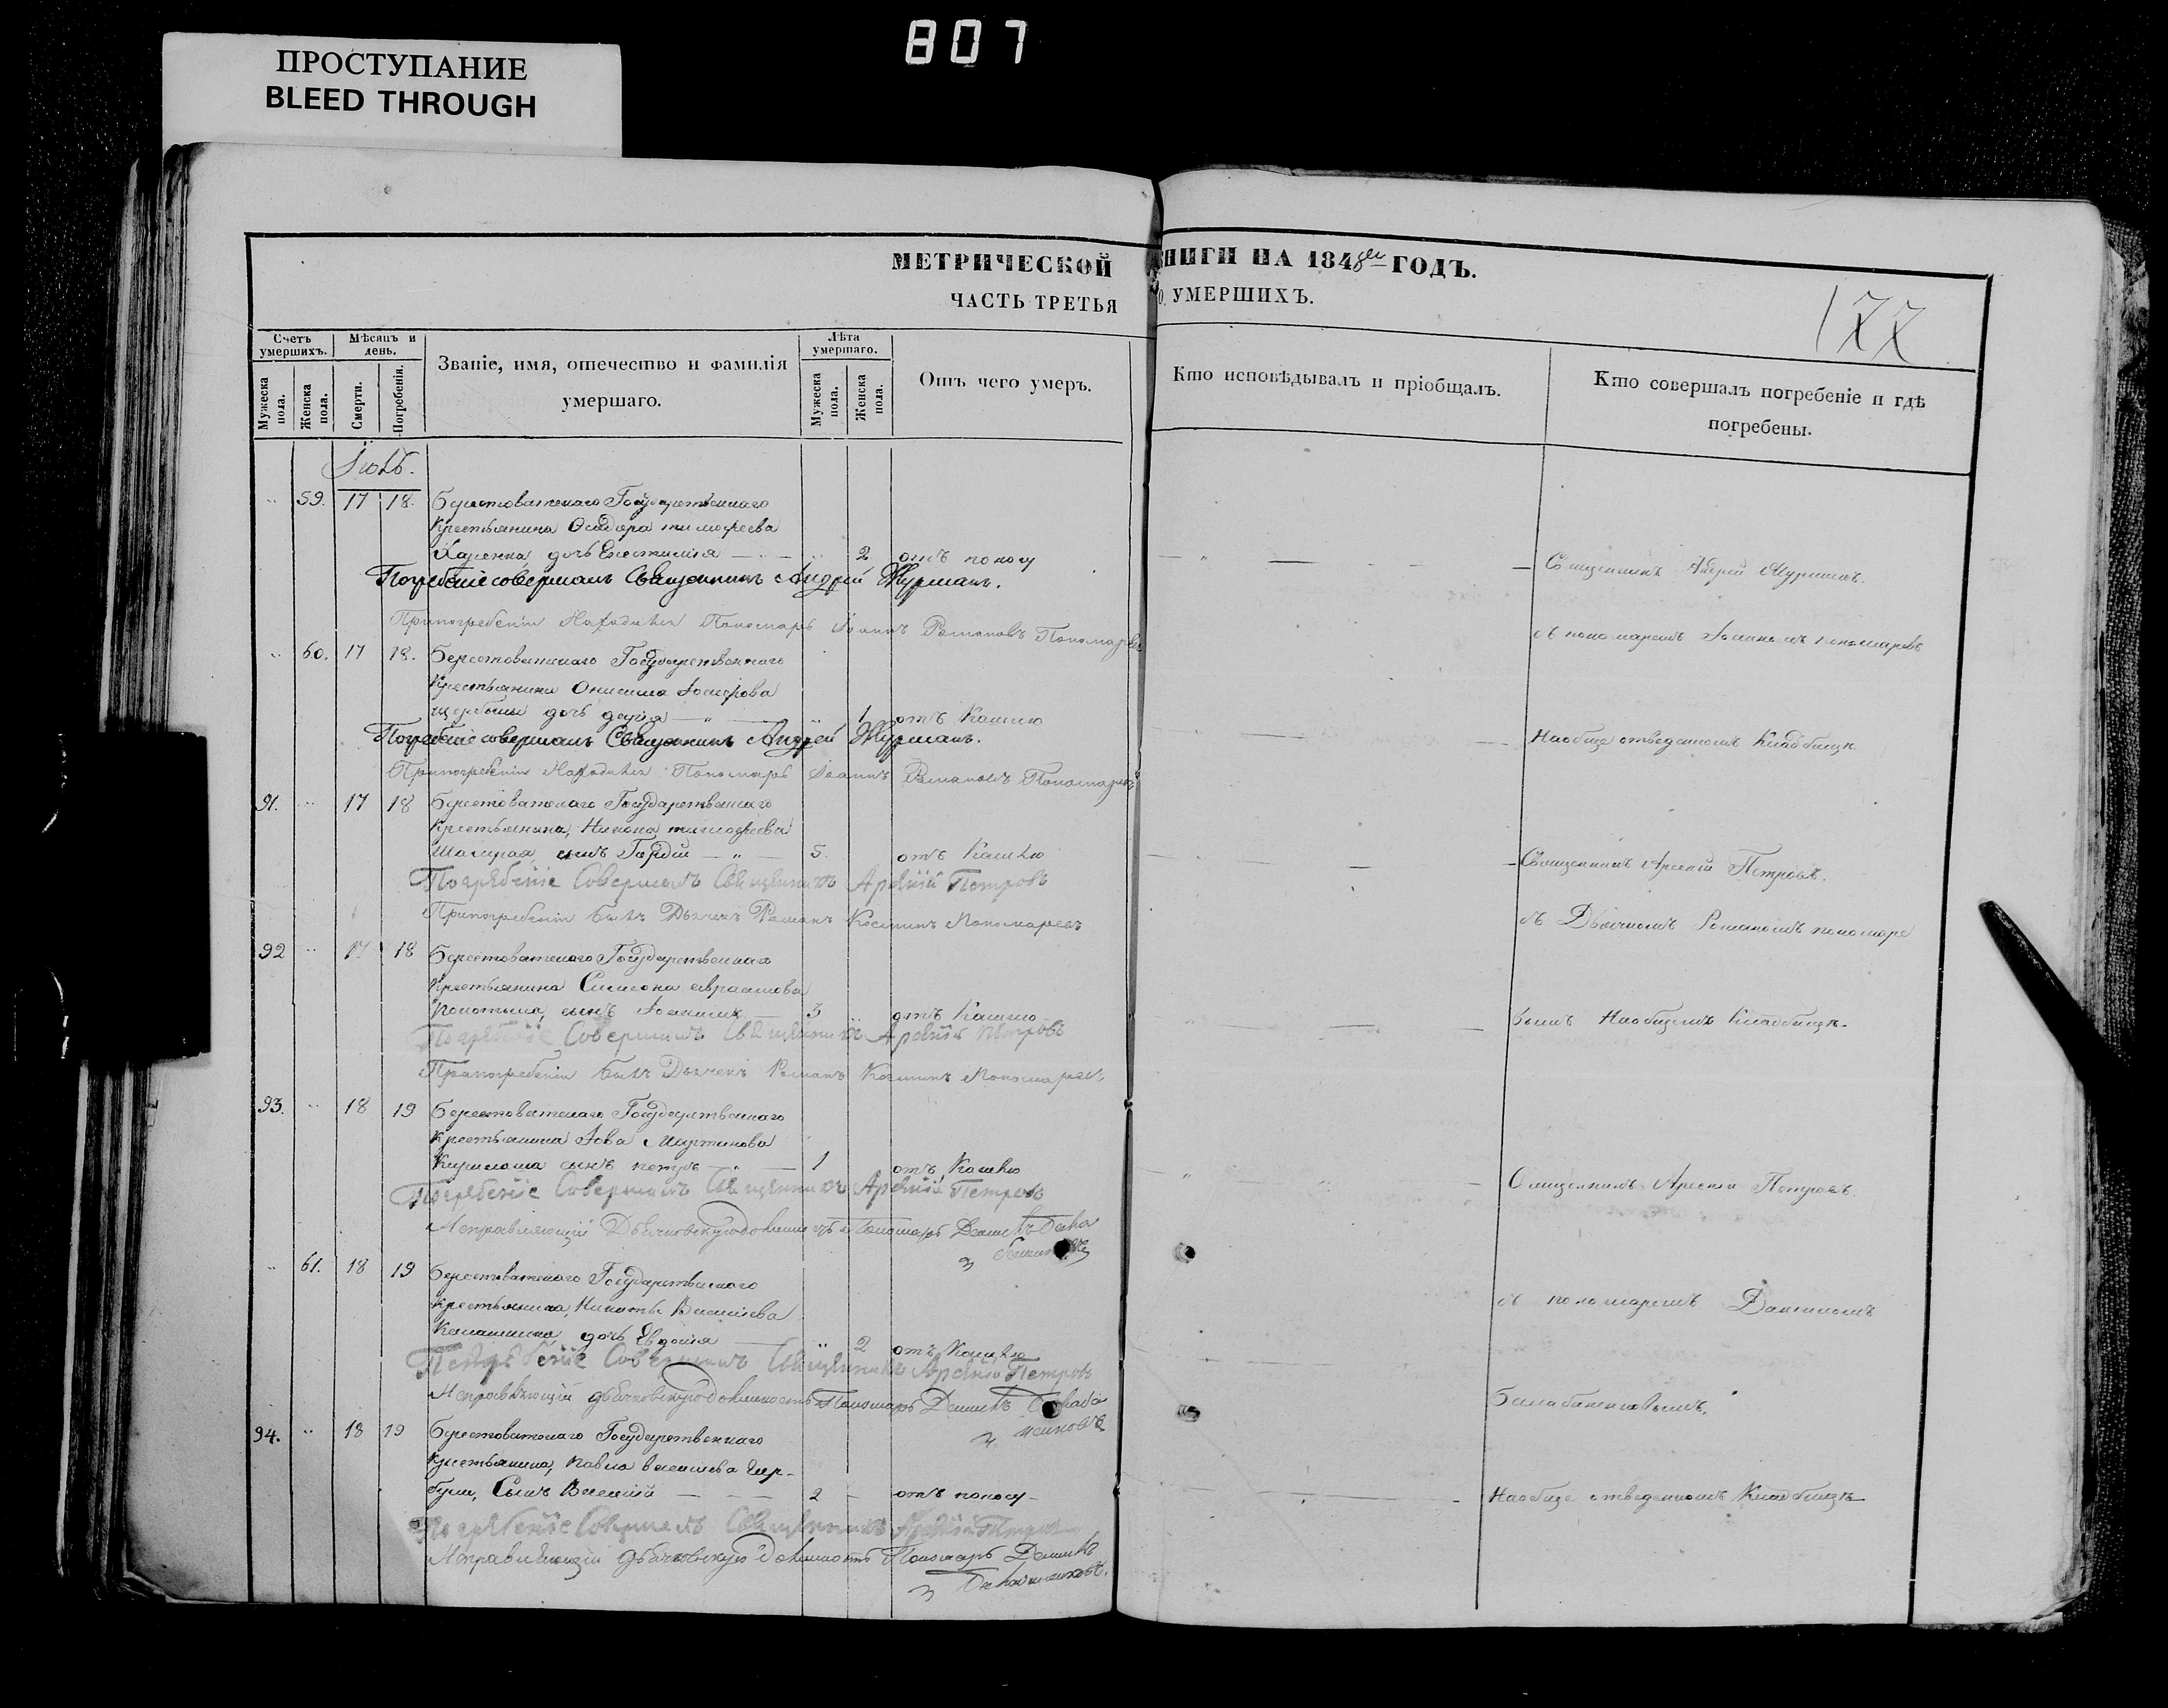 807
ПРОСТУПАНИЕ
BLEED THROUGH
МЕТРИЧЕСКОЙ КНИГИ НА 1848 ГОДЪ.
ЧАСТЬ ТРЕТЬЯ О УМЕРШИХЪ.
177
Счетъ умершихъ.
Мужеска пола.
Женска пола.
Мѣсяцъ и день.
Смерти.
Погребенія.
Званіе, имя, отечество и фамилія умершаго.
Лѣта умершаго.
Мужеска пола.
Женска пола.
Отъ чего умеръ.
Кто исповѣдывалъ и пріобщалъ.
Кто совершалъ погребеніе и гдѣ погребены.
59. 17 18. Берестоватскаго Государственнаго
Крестьянина тимофеева
дочь 2 отъ поносу
Священникъ Андрей Журманъ.
Погребеніе совершалъ Священникъ Андрей Журманъ.
Припогребеніи Находился Пономарь Іоаннъ Романовъ Пономаревъ
съ пономаремъ Іоанномъ пономаревъ
60. 17 18. Берестоватскаго Государственнаго
Крестьянина Онисима
дочь 1 отъ Кашлю
Наобще отведенномъ Кладбищѣ
Погребеніе совершалъ Священникъ Андрей Журманъ.
Припогребеніи Находился Пономарь Іоаннъ Романовъ Пономаревъ
91. 17 18 Берестоватскаго Государственнаго
Крестьянина, Никона тимофеева
сынъ Гордій 5. отъ Кашлю
Священникъ Арсеній Петровъ.
Погребеніе Совершалъ Священникъ Арсеній Петровъ
Припогребеніи былъ Дьячекъ Романъ Косминъ Пономаревъ
съ Дьячкомъ Романомъ пономаре
92 17 18 Берестоватскаго Государственнаго
Крестьянина Симеона авраамова
сынъ 3 отъ Кашлю
вымъ Наобщемъ Кладбищѣ.
Погребеніе Совершалъ Священникъ Арсеній Петровъ
Припогребеніи былъ Дьячекъ Романъ Косминъ Пономаревъ
93. 18 19 Берестоватскаго Государственнаго
Крестьянина Іова Мартинова
сынъ петръ 1 отъ Кашлю
Священникъ Арсеній Петровъ.
Погребеніе Совершалъ Священникъ Арсеній Петровъ
Исправляющій Дьячковскую должность Пономарь
61. 18 19 Берестоватскаго Государственнаго
Крестьянина, Никиты Васильева
съ пономаремъ
дочь Евдокія 2 отъ Кашлю
Погребеніе Совершалъ Священникъ Арсеній Петровъ
Исправляющій дьячковскую должность Пономарь
94. 18 19 Берестоватскаго Государственнаго
Крестьянина, Павла васильева
Сынъ Василій 2 отъ поносу
Наобще отведенномъ Кладбищѣ
Погребеніе Совершалъ Священникъ Арсеній Петровъ
Исправляющій дьячковскую должность Пономарь